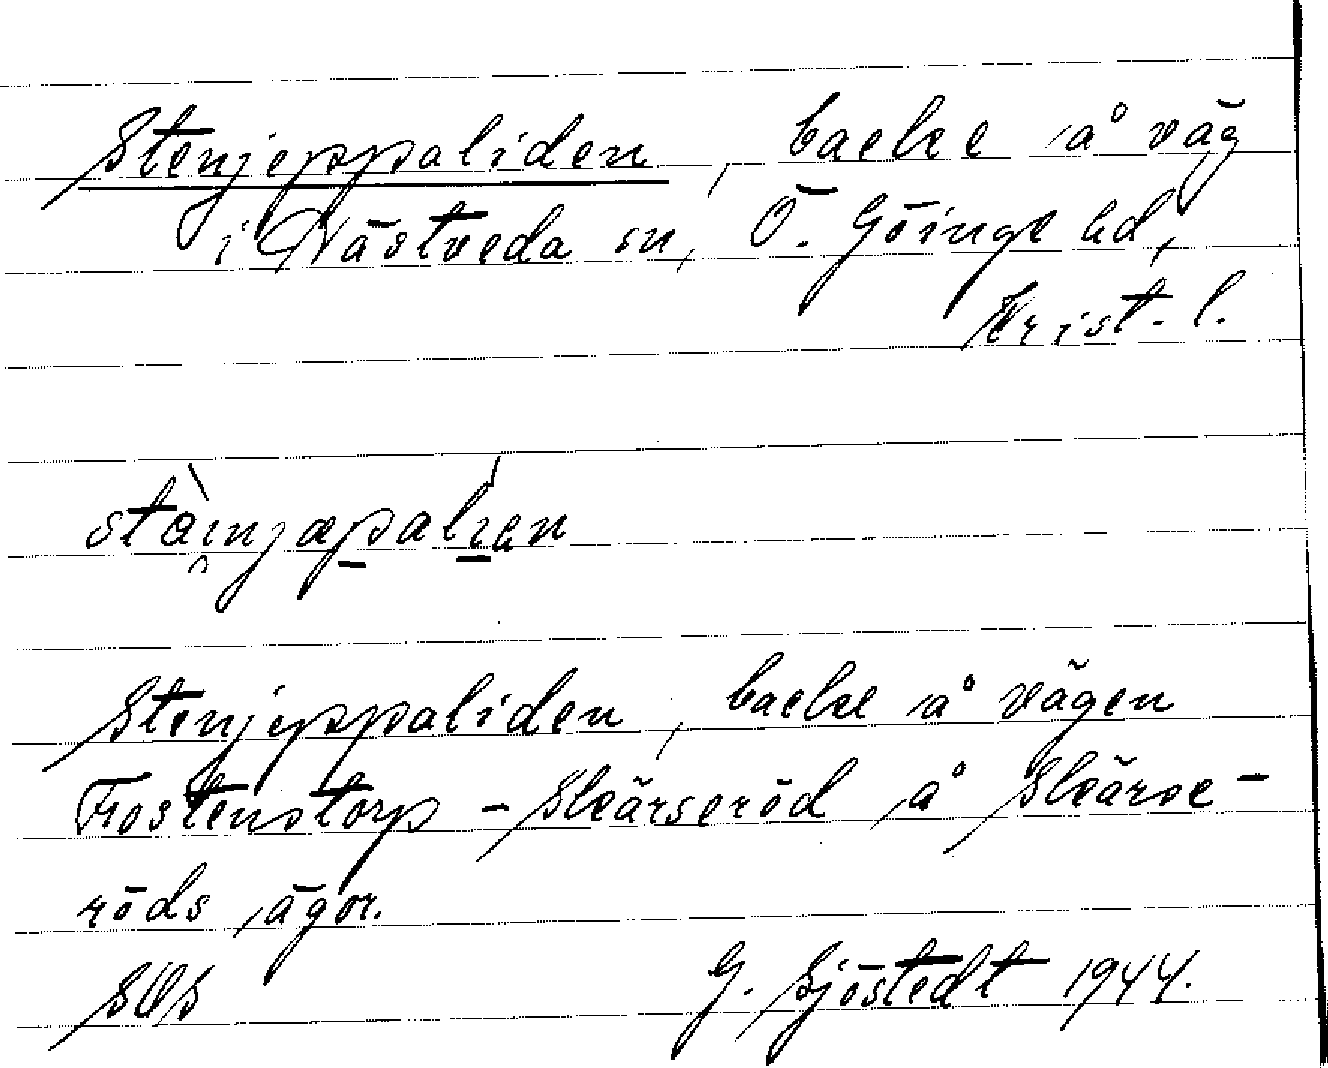 Stenjeppaliden, backe å väg
i Nåstveda sn, Ö. Göinge hd,
Krist. l.
Stenjeppaliden, backe å vägen
Frostenstorp - Skärseröd å Skärse-
röds ägor.
SOS G. Sjöstedt 1944.